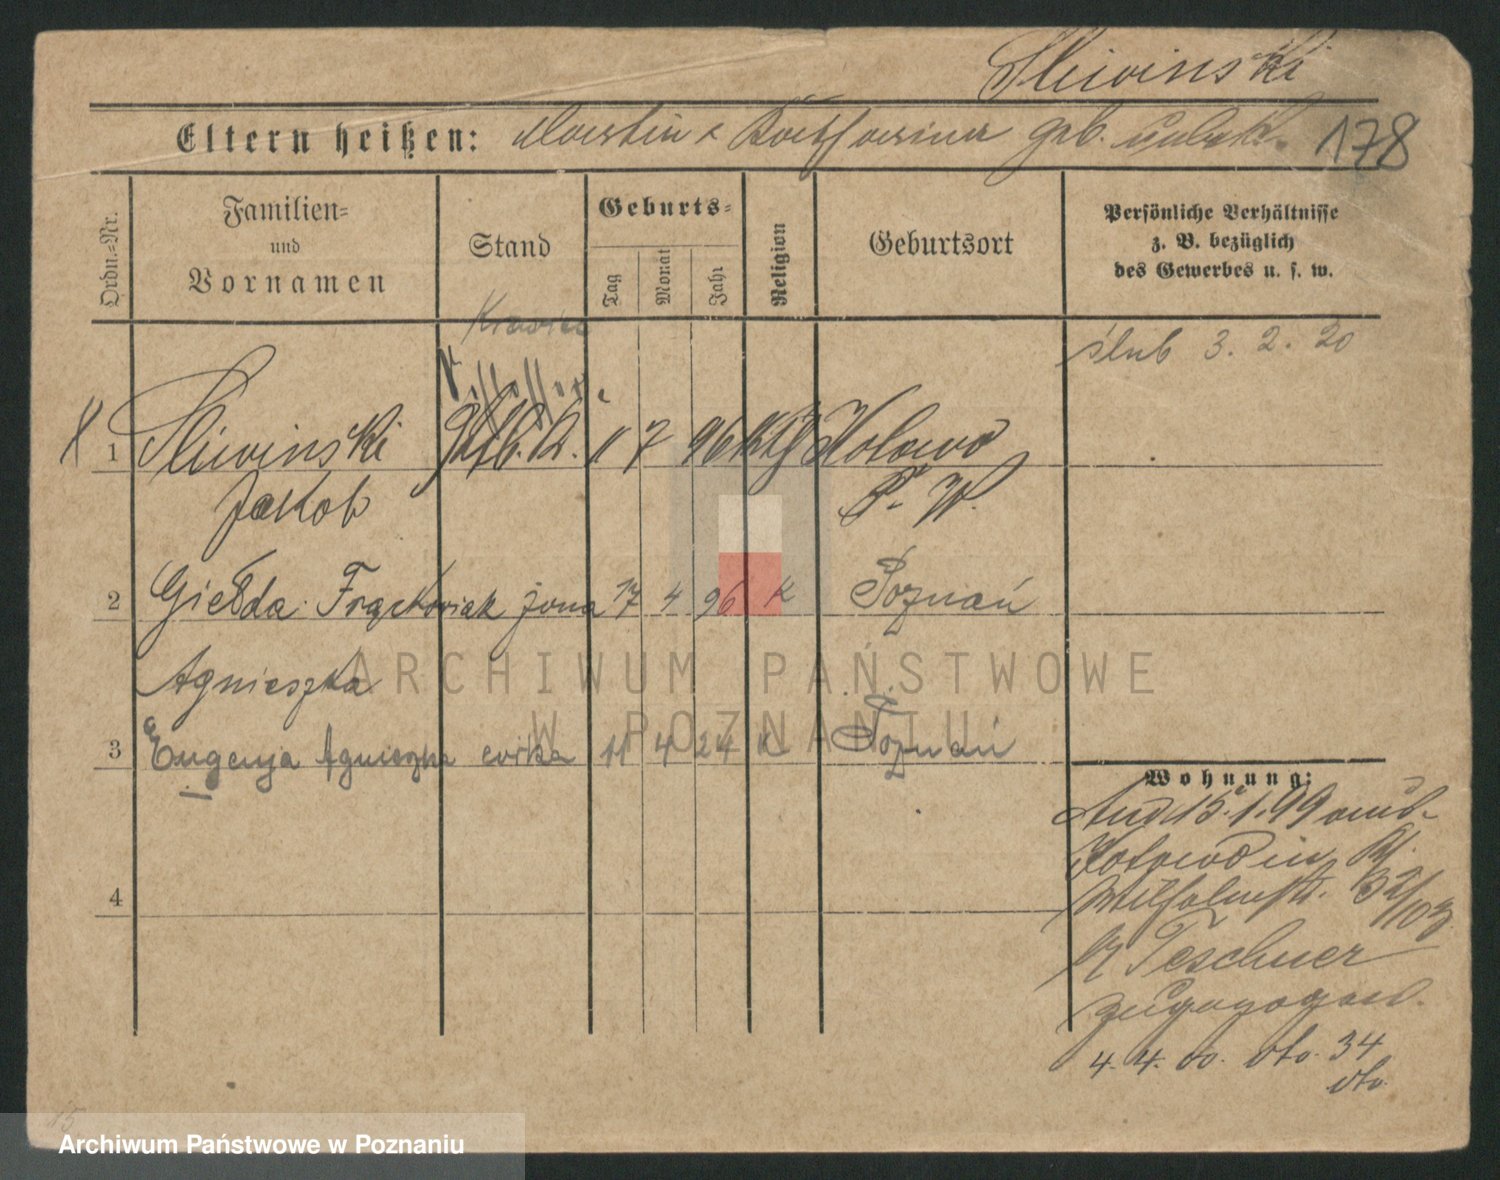 Sliwinski
Eltern heißen: Martin & Katharina geb. 178
Ordn.-Nr.
Familien- und Vornamen
Stand
Geburts-
Tag
Monat
Jahr
Religion
Geburtsort
Persönliche Verhältnisse
z. B. bezüglich
des Gewerbes u. s. w.
Krawiec
ślub 3. 2. 20
1 Sliwinski 7 96 kth
Jakob P. W.
2 Giełda Frąckowiak żona 17 4 96 K Poznań
Agnieszka
3 Eugenja Agnieszka córka 11 4 24 K Poznań
Wohnung:
15.1.99
4
Wilhelmstr.
Teschner
zugezogen
4. 4. 00. dto. 34
dto
15
ARCHIWUM PAŃSTWOWE
W POZNANIU
Archiwum Państwowe w Poznaniu